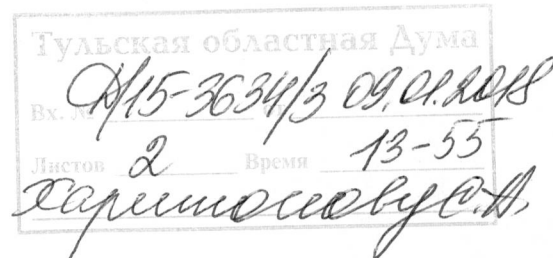 Тульская областная Дума
Вх. № Д/15-3634/3 09.01.2018
Листов 2 Время 13-55
Харитонову С.А.